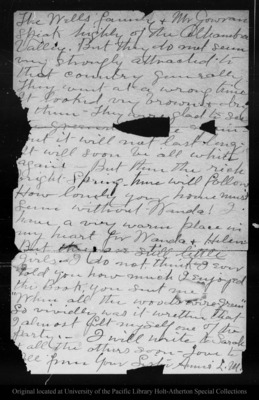 The Wells family & Mr. Gowran
speak highly of the Alhambra
Valley. But they do not seem
very strongly attracted to
that country generally
They went at a wrong time
it looked very brown
to them - They were glad to see
but it will not last long
it will soon be all white
again. But then the rich
bright Spring time will follow
How lonely your home must
seem without Wanda! I
have a very warm place in
my heart for Wanda & Helen
But they are still little
girls. I do not think I ever
told you how much I enjoyed
the book you sent me
"When all the woods are green"
So vividly was it written that
I almost felt myself one of the
I will write to Sarah
& all the others soon - Love to
all from your Annie L. M.
Original located at University of the Pacific Library Holt-Atherton Special Collections